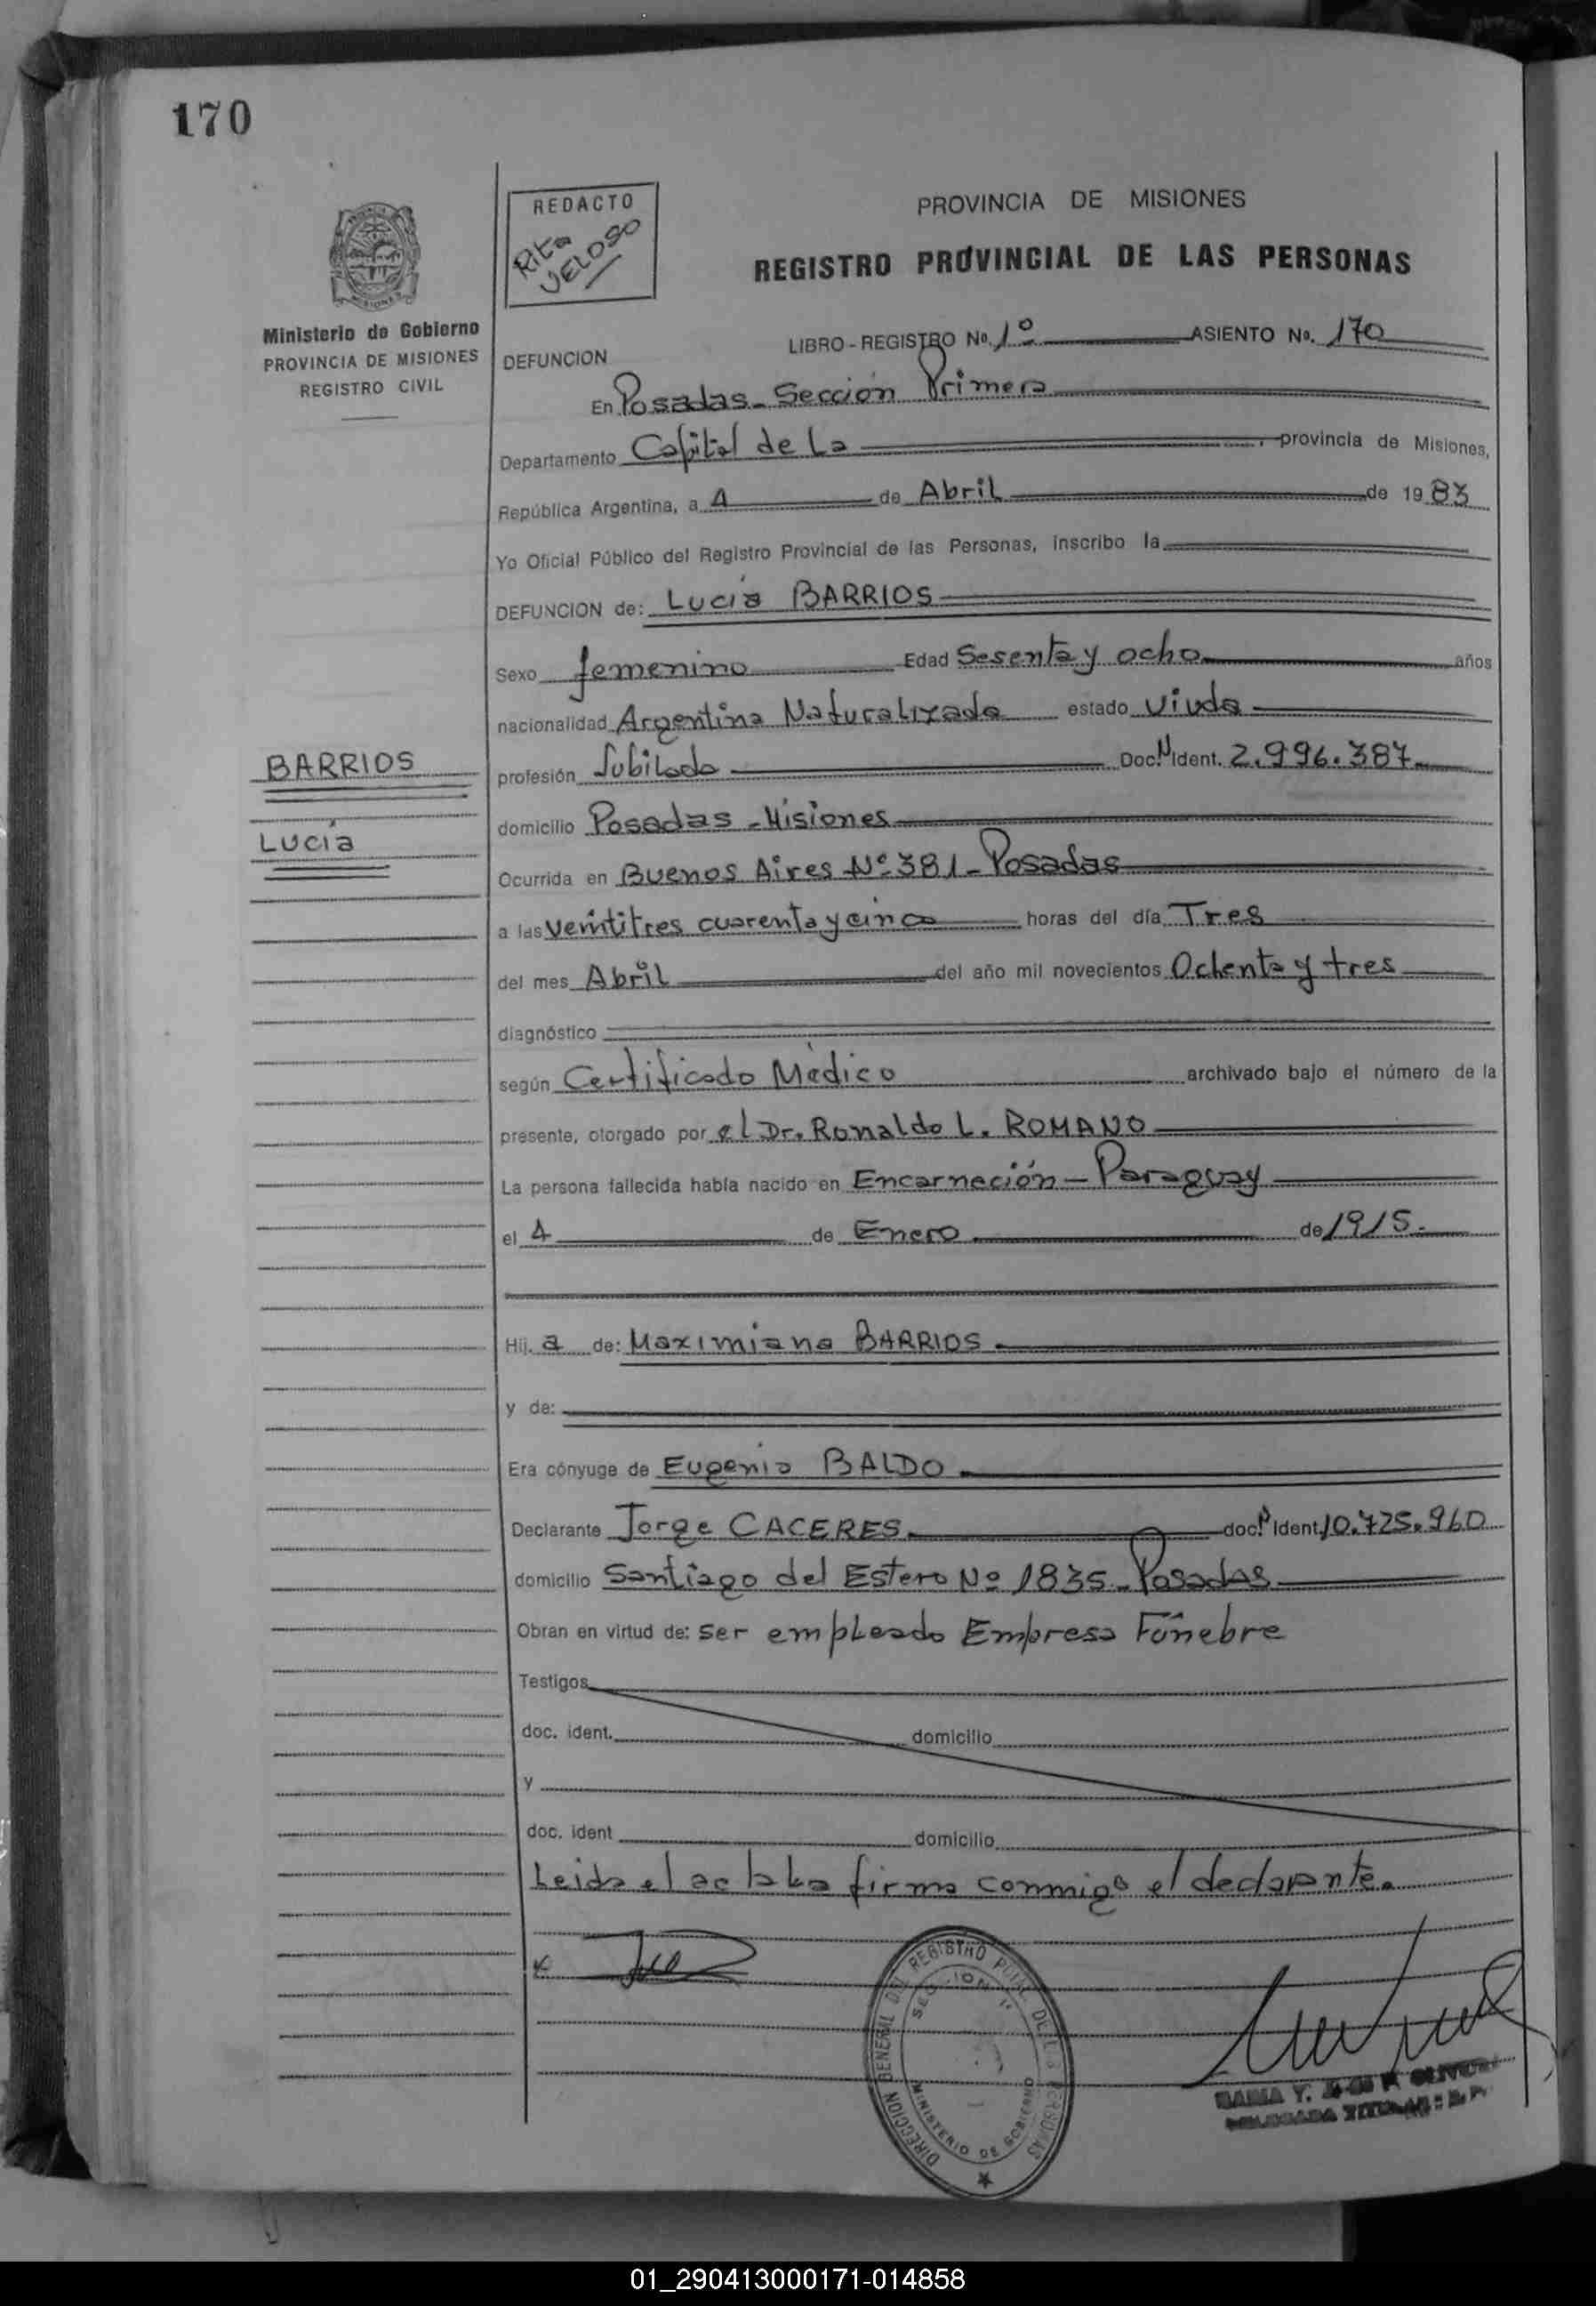 170
REDACTO
Rita
VELOSO
PROVINCIA DE MISIONES
REGISTRO PROVINCIAL DE LAS PERSONAS
Ministerio de Gobierno
PROVINCIA DE MISIONES
REGISTRO CIVIL
LIBRO - REGISTRO No. 1º ASIENTO No. 170
DEFUNCION
En Posadas - Sección Primera
Departamento Capital de La , provincia de Misiones,
República Argentina, a 4 de Abril de 1983
Yo Oficial Público del Registro Provincial de las Personas, inscribo la
DEFUNCION de: Lucía BARRIOS
Sexo femenino Edad Sesenta y ocho años
nacionalidad Argentina Naturalizada estado Viuda
BARRIOS
profesión Jubilada Doc. N Ident. 2.996.387
domicilio Posadas - Misiones
Lucía
Ocurrida en Buenos Aires Nº 381 - Posadas
a las veintitres cuarenta y cinco horas del día Tres
del mes Abril del año mil novecientos Ochenta y tres
diagnóstico
según Certificado Médico archivado bajo el número de la
presente, otorgado por el Dr. Ronaldo L. ROMANO
La persona fallecida había nacido en Encarnación - Paraguay
el 4 de Enero de 1915.
Hij. a de: Maximiana BARRIOS
y de:
Era cónyuge de Eugenio BALDO
Declarante Jorge CACERES doc. N Ident. 10.725.960
domicilio Santiago del Estero Nº 1835 - Posadas
Obran en virtud de: ser empleado Empresa Fúnebre
Testigos
doc. ident. domicilio
y
doc. ident domicilio
Leida el acta la firma conmigo el declarante.
DIRECCION GENERAL DEL REGISTRO PCIAL DE LAS PERSONAS
SECCION 1ª
MINISTERIO DE GOBIERNO
01_290413000171-014858